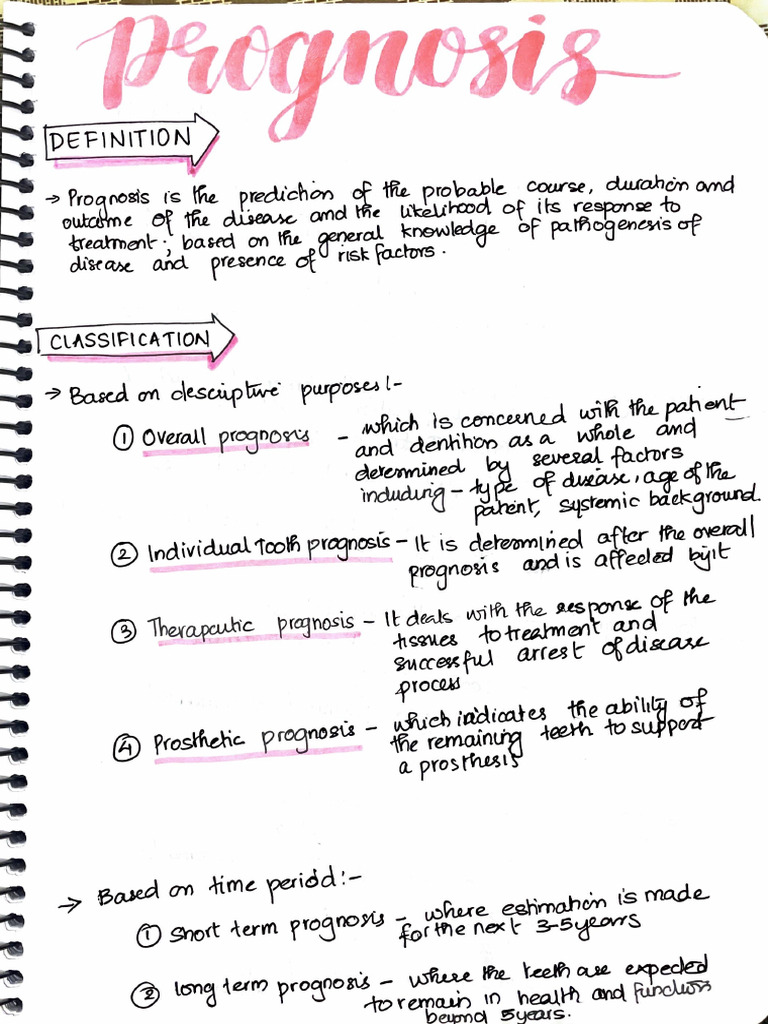 Prognosis
DEFINITION
→ Prognosis is the prediction of the probable course, duration and
outcome of the disease and the likelihood of its response to
treatment; based on the general knowledge of pathogenesis of
disease and presence of risk factors.
CLASSIFICATION
→ Based on descriptive purposes:-
① Overall prognosis - which is concerned with the patient
and dentition as a whole and
determined by several factors
including - type of disease, age of the
patient, systemic background.
② Individual Tooth prognosis - It is determined after the overall
prognosis and is affected by it
③ Therapeutic prognosis - It deals with the response of the
tissues to treatment and
successful arrest of disease
process
④ Prosthetic prognosis - which indicates the ability of
the remaining teeth to support
a prosthesis
→ Based on time period:-
① Short term prognosis - where estimation is made
for the next 3-5 years
② long term prognosis - where the teeth are expected
to remain in health and functions
beyond 5 years.